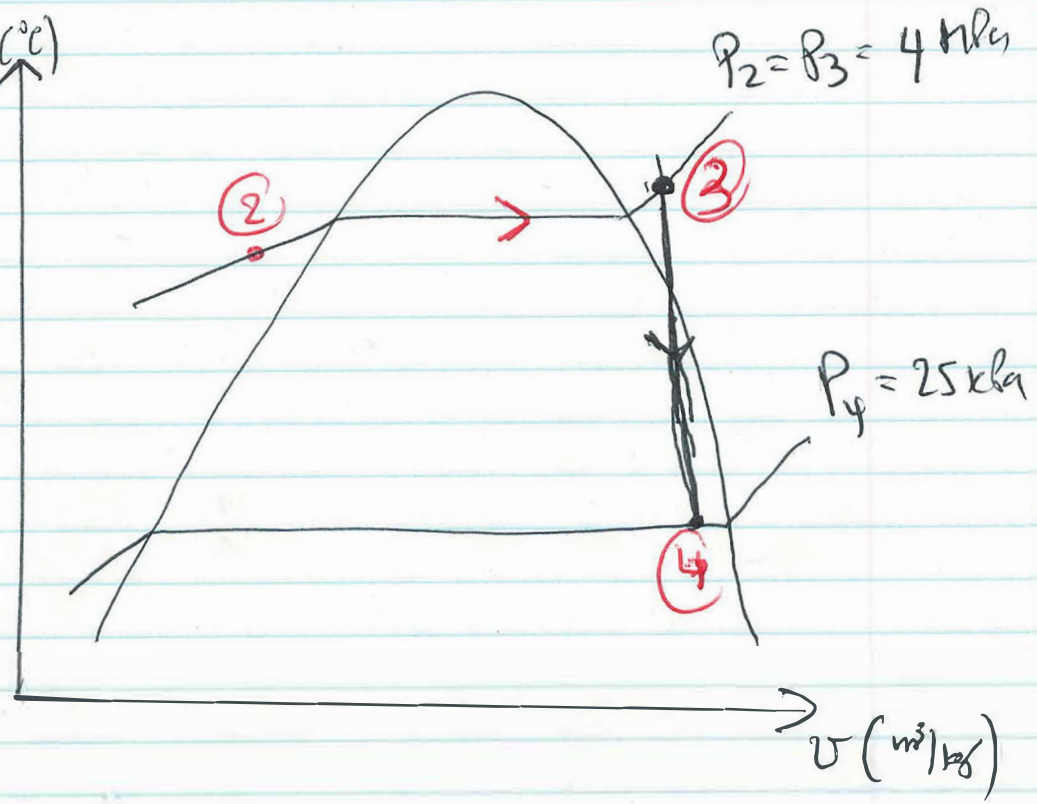 (°C)
P₂ = P₃ = 4 MPa
②
③
P₄ = 25 kPa
④
v (m³/kg)